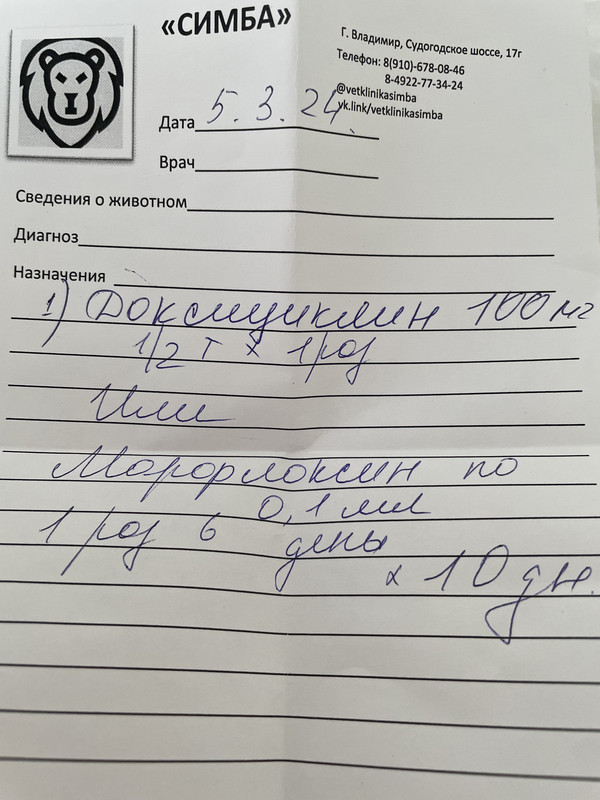 «СИМБА»
Г. Владимир, Судогодское шоссе, 17г
Телефон: 8(910)-678-08-46
8-4922-77-34-24
@vetklinikasimba
vk.link/vetklinikasimba
Дата 5.3.24.
Врач
Сведения о животном
Диагноз
Назначения
1) Доксициклин 100 мг
1/2 т x 1 раз
Или
Марофлоксин по
0,1 мл
1 раз в день
x 10 дн.